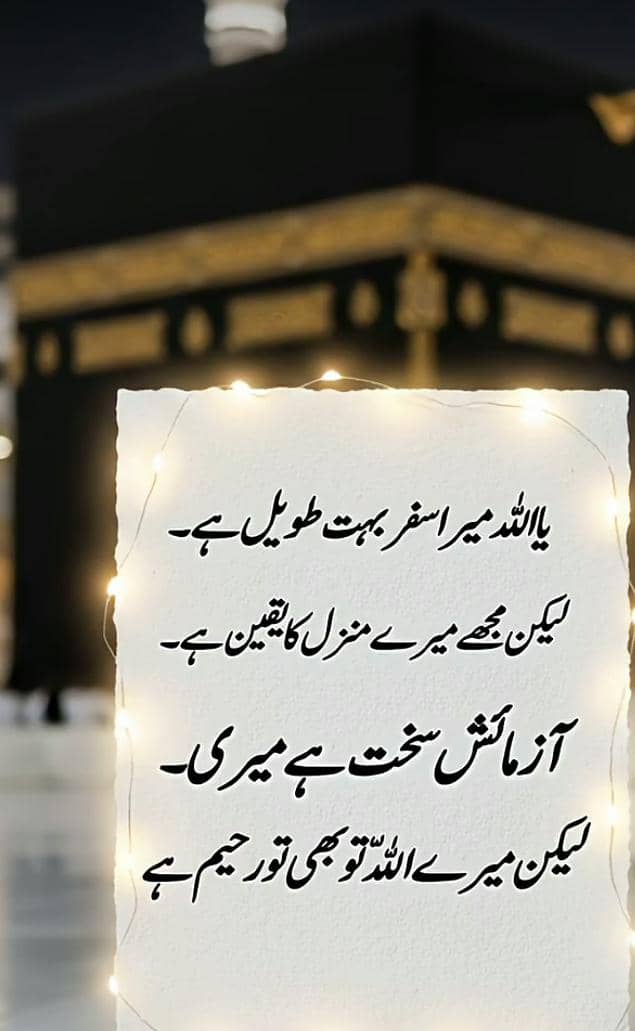 یااللہ میرا سفر بہت طویل ہے۔
لیکن مجھے میرے منزل کا یقین ہے۔
آزمائش سخت ہے میری۔
لیکن میرے اللہ تو بھی تو رحیم ہے